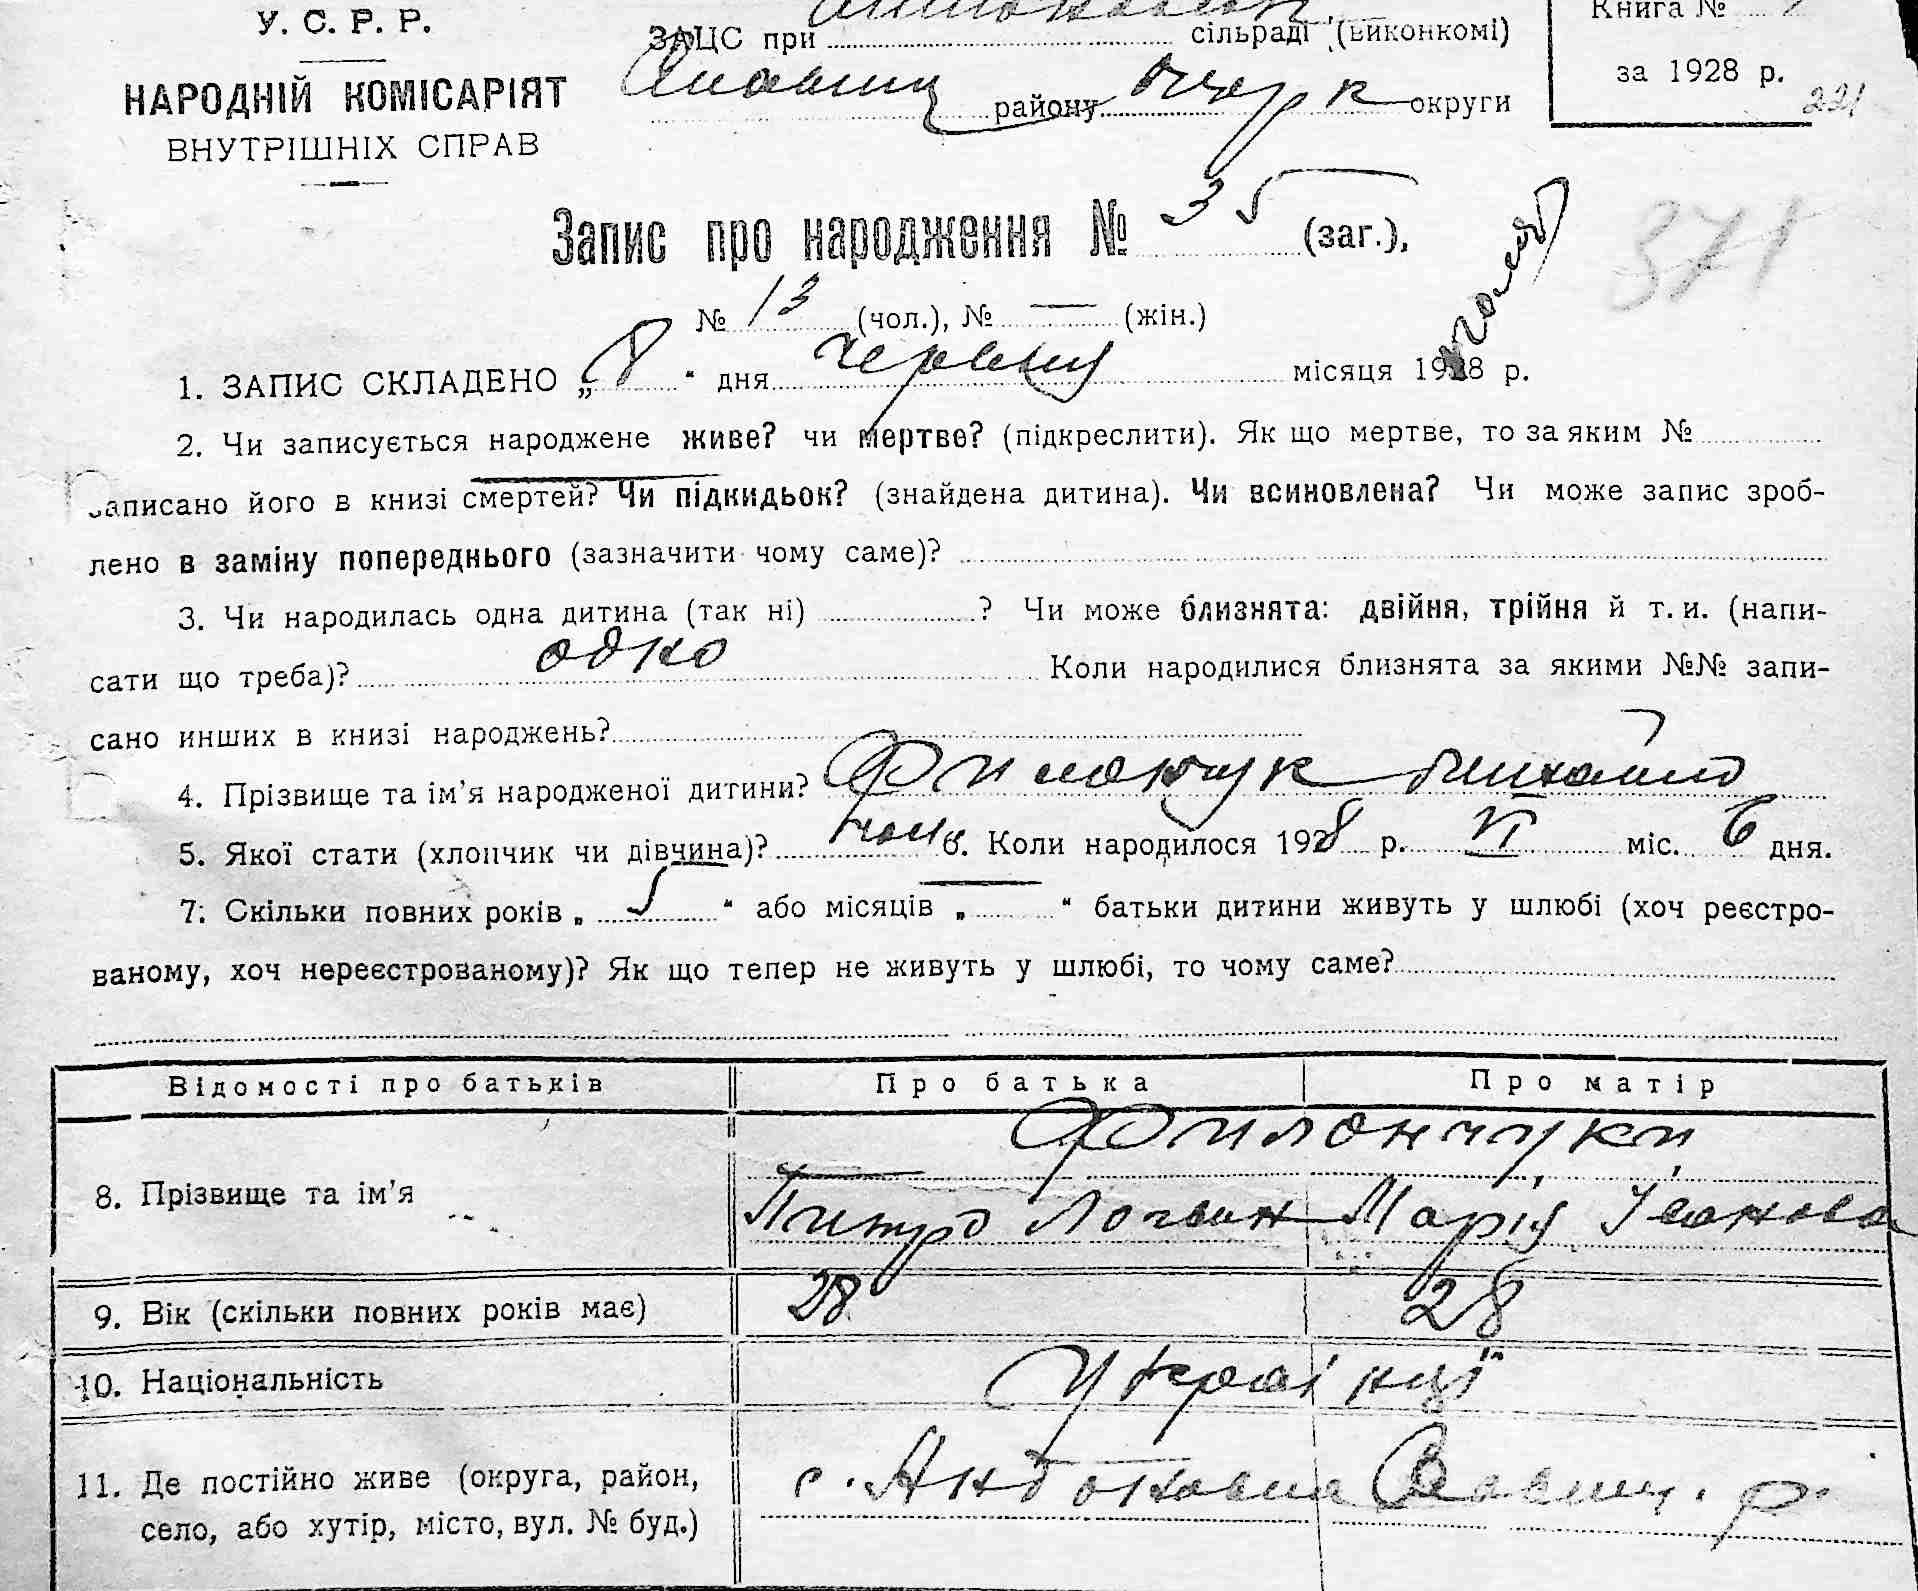 У. С. Р. Р.
НАРОДНІЙ КОМІСАРІЯТ
ВНУТРІШНІХ СПРАВ
ЗАЦС при сільраді (виконкомі)
району округи
Книга №
за 1928 р.
221
Запис про народження № 35 (заг.),
371
№ 13 (чол.), № — (жін.)
1. ЗАПИС СКЛАДЕНО „8“ дня червня місяця 1928 р.
2. Чи записується народжене живе? чи мертве? (підкреслити). Як що мертве, то за яким №
записано його в книзі смертей? Чи підкидьок? (знайдена дитина). Чи всиновлена? Чи може запис зроб-
лено в заміну попереднього (зазначити чому саме)?
3. Чи народилась одна дитина (так ні) ? Чи може близнята: двійня, трійня й т. и. (напи-
сати що треба)? одно Коли народилися близнята за якими №№ запи-
сано инших в книзі народжень?
4. Прізвище та ім’я народженої дитини? Филончук Михайло
5. Якої стати (хлопчик чи дівчина)? чол 6. Коли народилося 1928 р. VI міс. 6 дня.
7. Скільки повних років „ 5 “ або місяців „ — “ батьки дитини живуть у шлюбі (хоч реєстро-
ваному, хоч нереєстрованому)? Як що тепер не живуть у шлюбі, то чому саме?
Відомості про батьків Про батька Про матір
Филончуки
8. Прізвище та ім’я Питро Логвин Марія Іванова
9. Вік (скільки повних років має) 28 28
10. Національність Українці
11. Де постійно живе (округа, район, с. Андоновка р.
село, або хутір, місто, вул. № буд.)